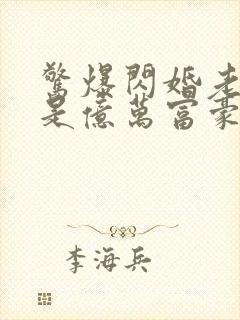 驚爆閃婚老
是億萬富豪
李海兵